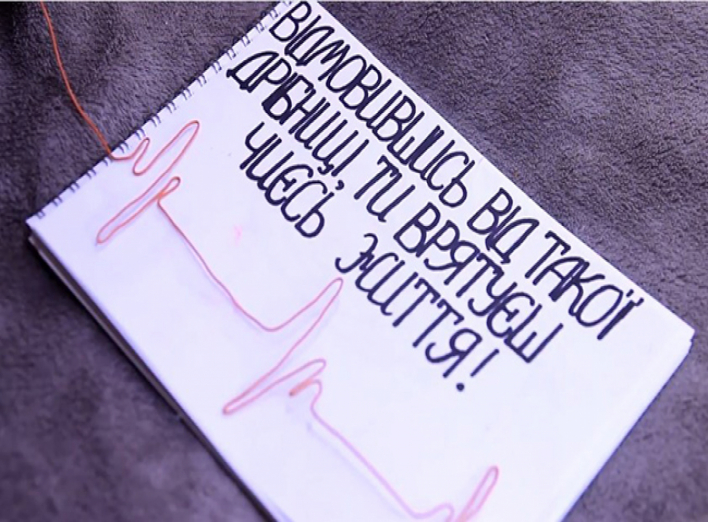 ВІДМОВИВШИСЬ ВІД ТАКОЇ
ДРІБНИЦІ, ТИ ВРЯТУЄШ
ЧИЄСЬ ЖИТТЯ!